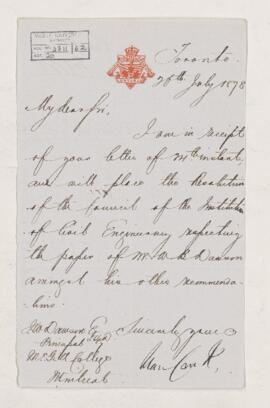 Toronto
26th July 1878
My dear Sir,
I am in receipt
of your letter of 24th instant,
and will place the Resolution
of the Council of the Institution
of Civil Engineers respecting
the paper of Mr W B Dawson
amongst his other recommenda
tions.
Sincerely yours
J W Dawson Esq
Principal
McGill College
Montreal